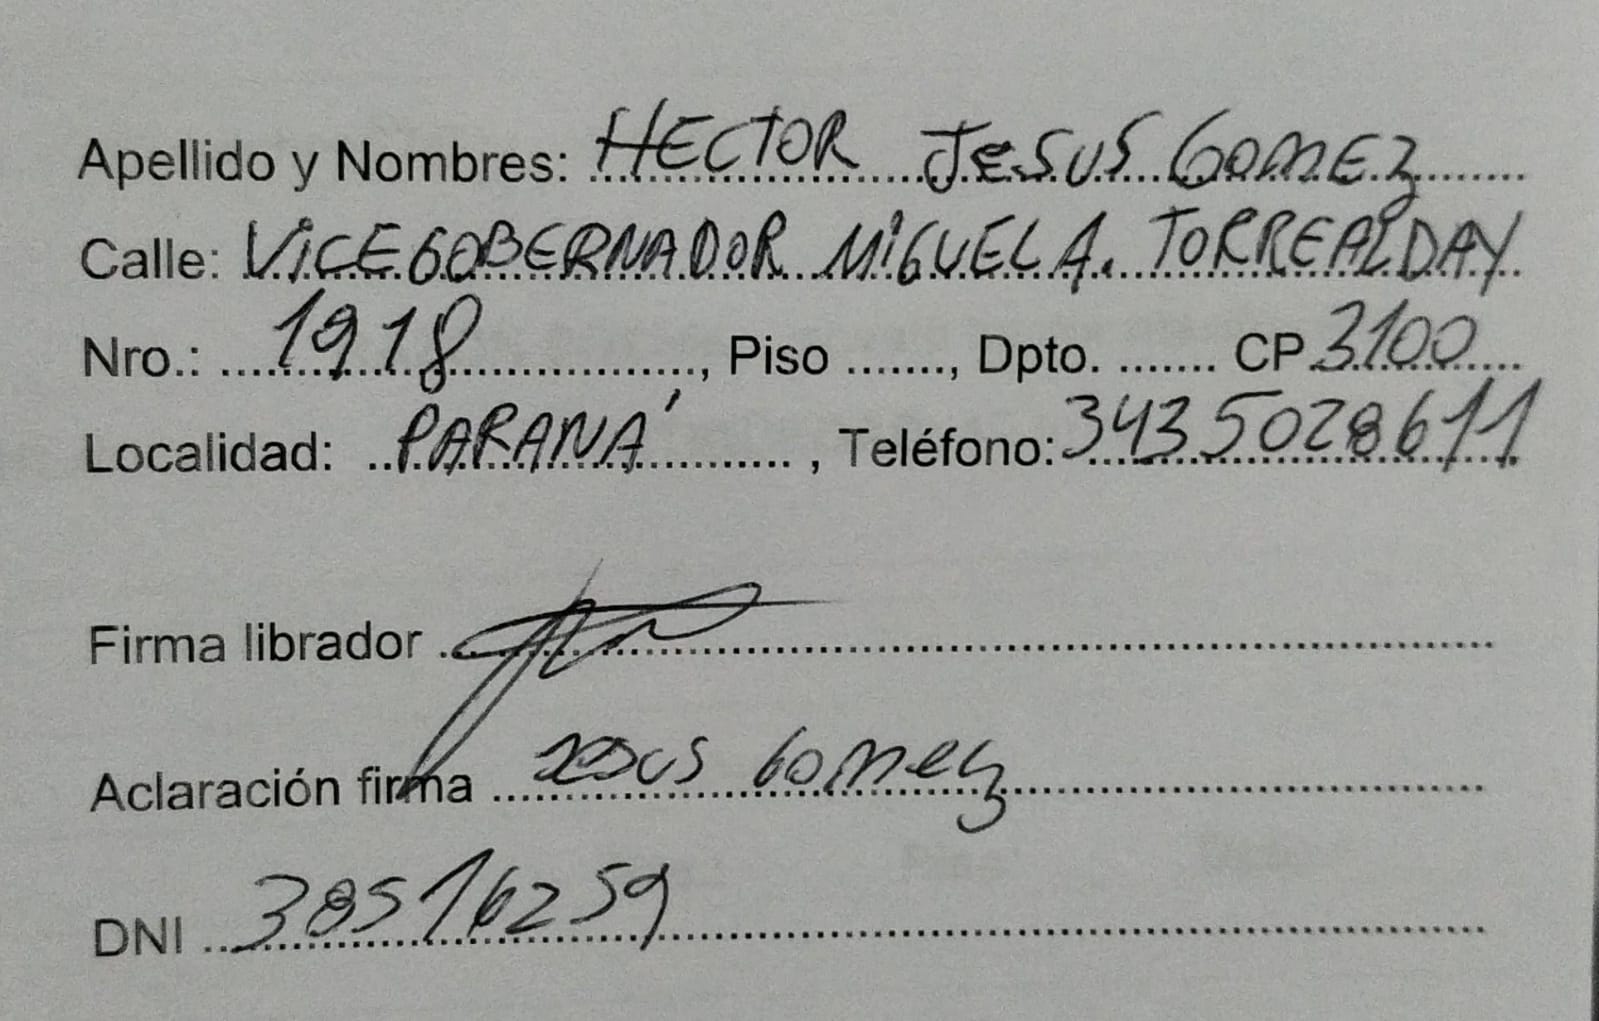 Apellido y Nombres: HECTOR JESUS GOMEZ
Calle: VICEGOBERNADOR MIGUEL A. TORREALDAY
Nro.: 1918, Piso ......., Dpto. ....... CP 3100
Localidad: PARANÁ, Teléfono: 3435028611
Firma librador
Aclaración firma Jesus Gomez
DNI 38516259